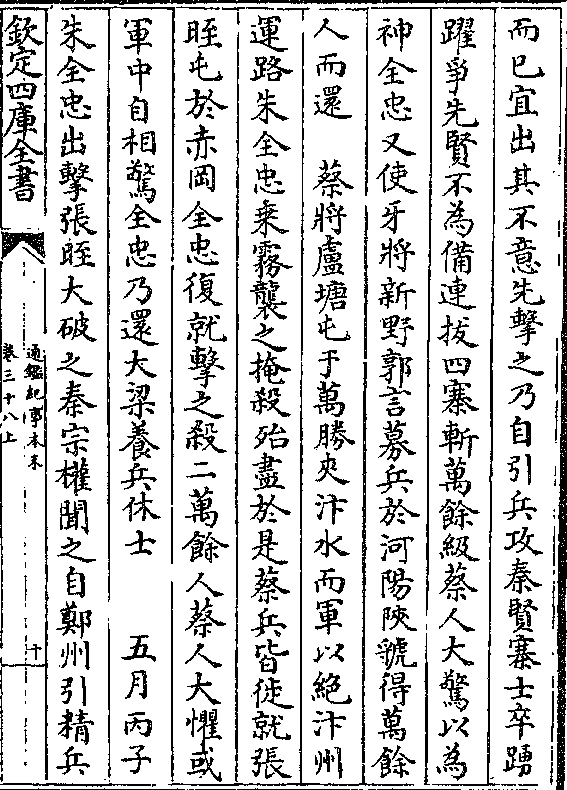 而已宜出其不意先擊之乃自引兵攻秦賢寨士卒踴
躍爭先賢不為備連拔四寨斬萬餘級蔡人大驚以為
神全忠又使牙將新野郭言募兵於河陽陜虢得萬餘
人而還　蔡將盧塘屯于萬勝夾汴水而軍以絶汴州
運路朱全忠乗霧襲之掩殺殆盡於是蔡兵皆徙就張
晊屯於赤岡全忠復就擊之殺二萬餘人蔡人大懼或
軍中自相驚全忠乃還大梁養兵休士　五月丙子
朱全忠出擊張晊大破之秦宗權聞之自鄭州引精兵
欽定四庫全書
通鑑紀事本末
卷三十八上
十